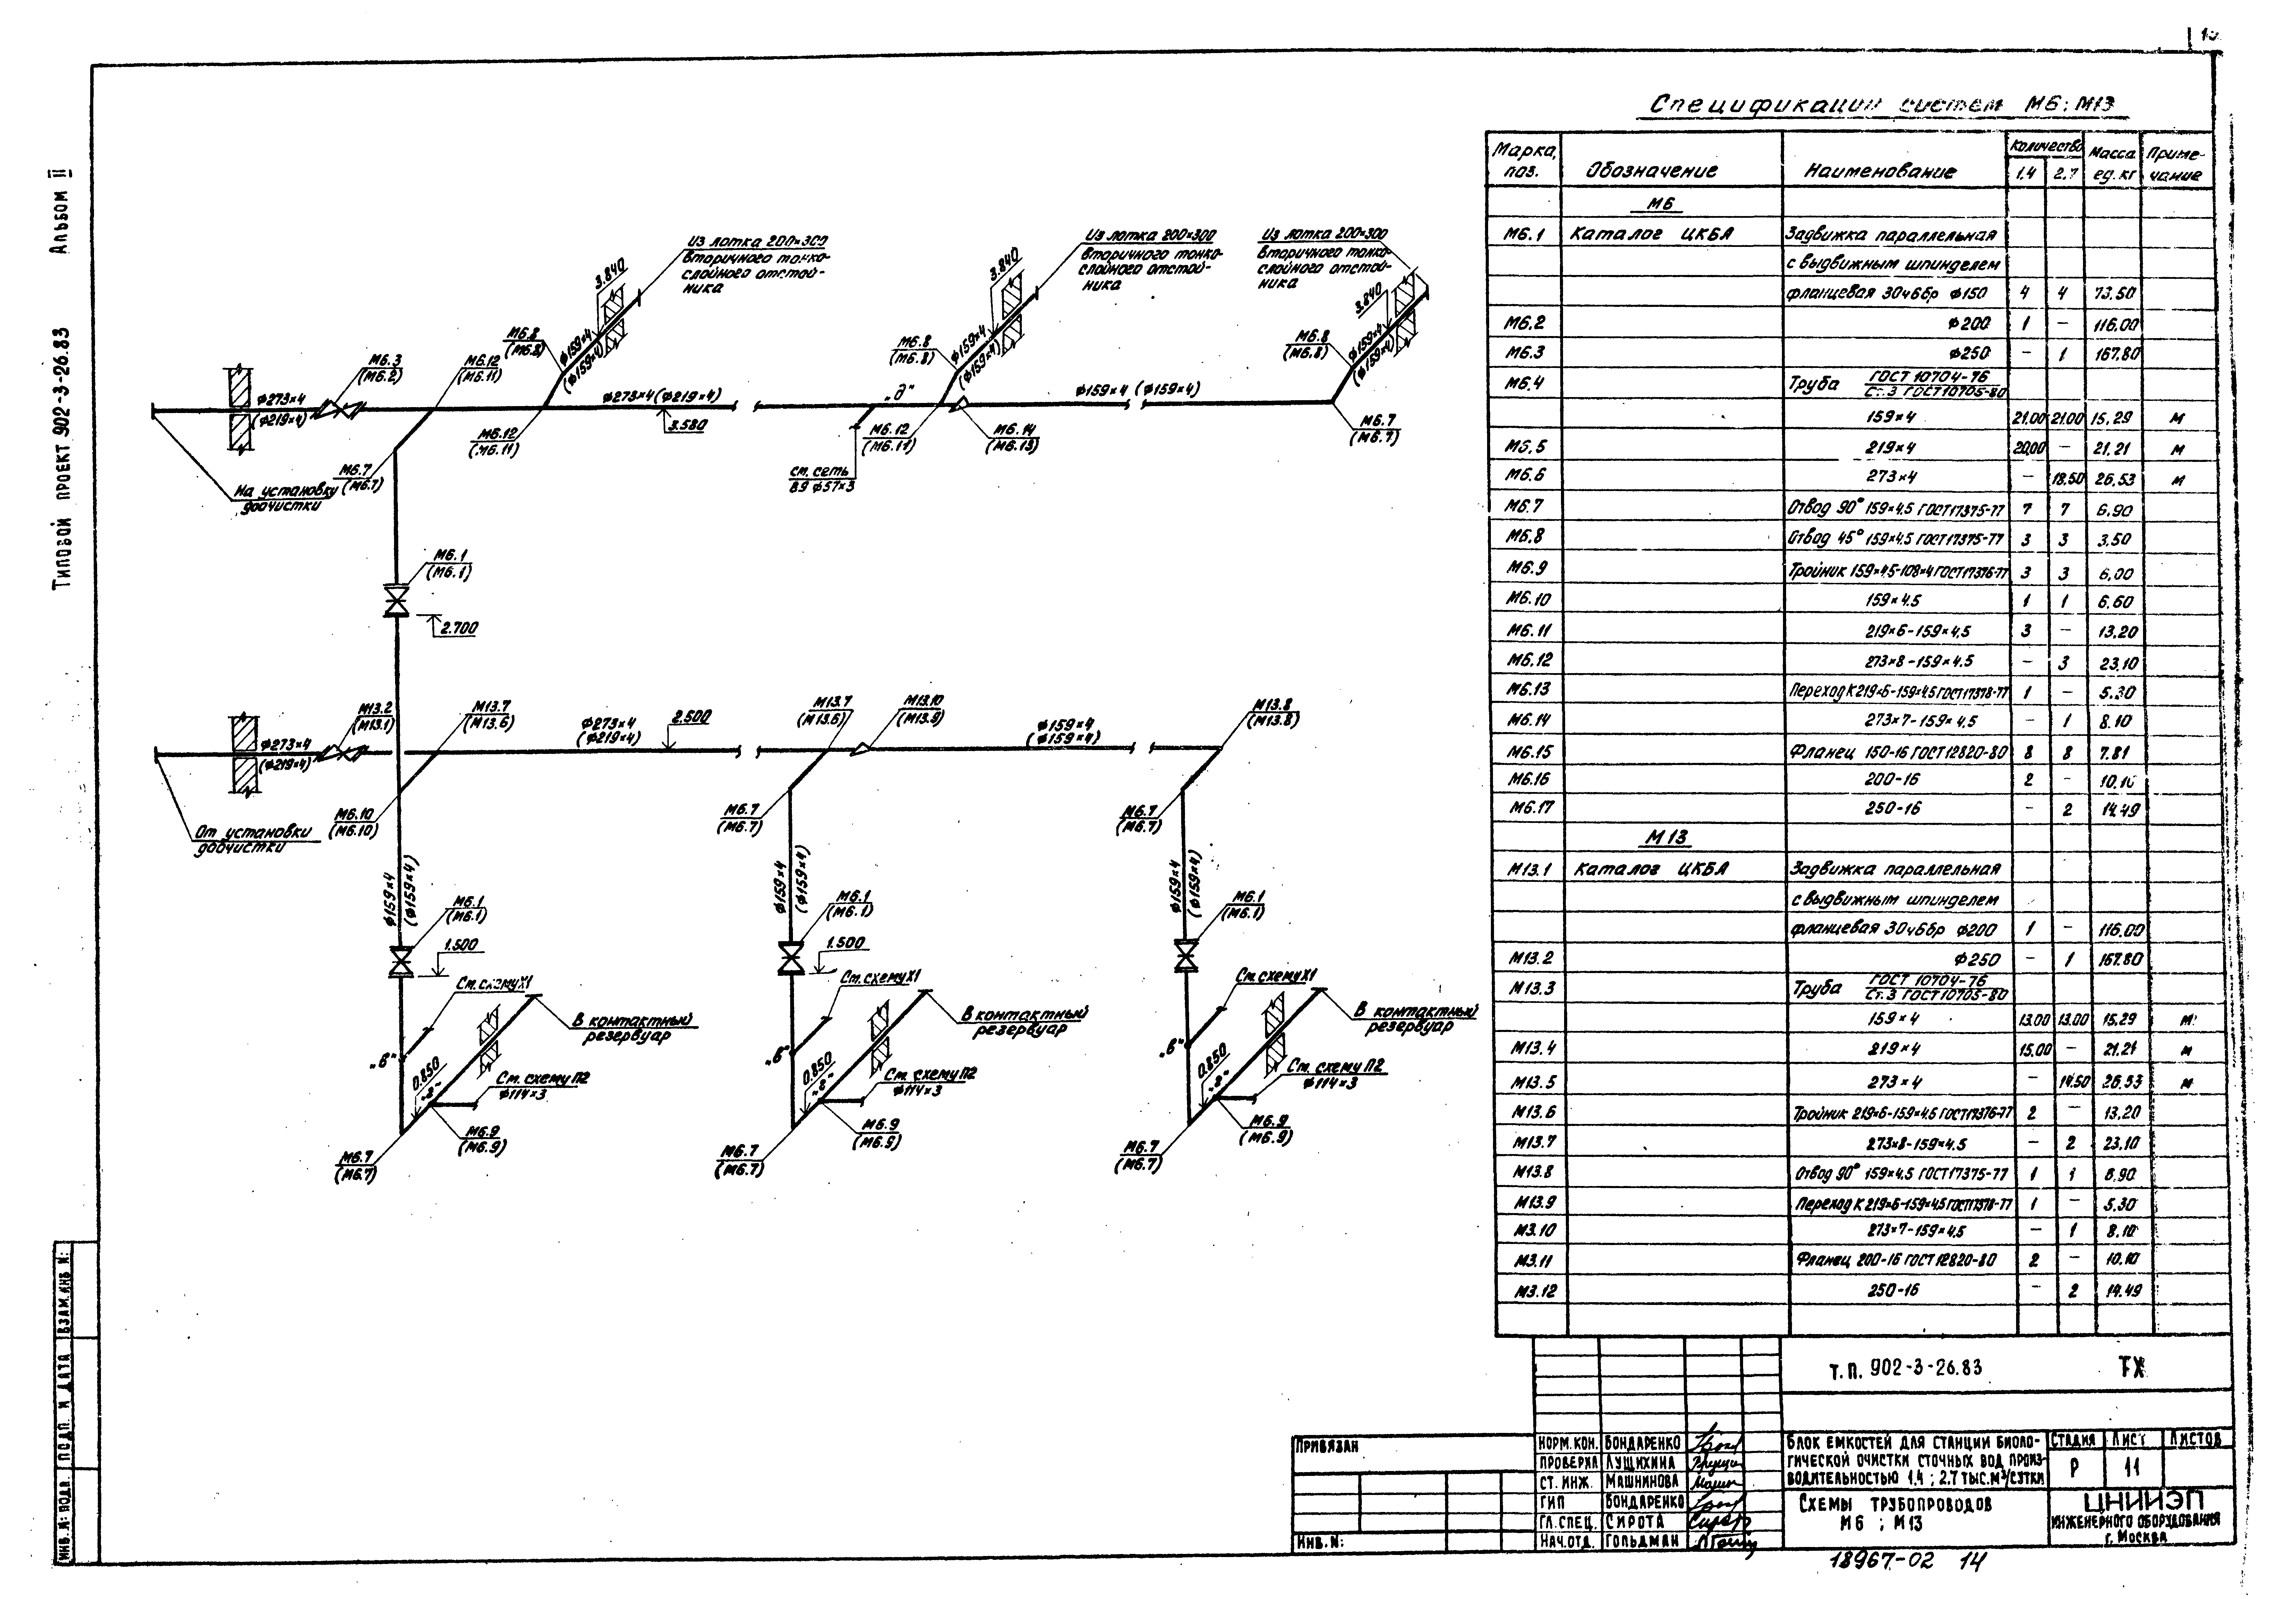 Типовой проект 902-3-26.83 Альбом II
Спецификации систем М6; М13
Марка, поз. Обозначение Наименование Количество 1.4 2.7 Масса ед. кг Примечание
М6
М6.1 Каталог ЦКБА Задвижка параллельная
с выдвижным шпинделем
фланцевая 30ч6бр ф150 4 4 73.50
М6.2 ф200 1 – 116.00
М6.3 ф250 – 1 167.80
М6.4 Труба ГОСТ 10704-76
Ст.3 ГОСТ 10705-80
159×4 21.00 21.00 15,29 м
М6.5 219×4 20.00 – 21.21 м
М6.6 273×4 – 18.50 26,53 м
М6.7 Отвод 90° 159×4,5 ГОСТ17375-77 7 7 6.90
М6.8 Отвод 45° 159×4.5 ГОСТ17375-77 3 3 3.50
М6.9 Тройник 159×4.5-108×4 ГОСТ17376-77 3 3 6.00
М6.10 159×4.5 1 1 6.60
М6.11 219×6-159×4.5 3 – 13,20
М6.12 273×8-159×4.5 – 3 23.10
М6.13 Переход К219×6-159×4.5 ГОСТ17378-77 1 – 5.30
М6.14 273×7-159×4,5 – 1 8.10
М6.15 Фланец 150-16 ГОСТ12820-80 8 8 7.81
М6.16 200-16 2 – 10.10
М6.17 250-16 – 2 14.49
М13
М13.1 Каталог ЦКБА Задвижка параллельная
с выдвижным шпинделем
фланцевая 30ч6бр ф200 1 – 116.00
М13.2 ф250 – 1 167.80
М13.3 Труба ГОСТ 10704-76
Ст.3 ГОСТ10705-80
159×4 13.00 13.00 15.29 м
М13.4 219×4 15.00 – 21.21 м
М13.5 273×4 – 14.50 26.53 м
М13.6 Тройник 219×6-159×4.5 ГОСТ17376-77 2 – 13,20
М13.7 273×8-159×4.5 – 2 23.10
М13.8 Отвод 90° 159×4,5 ГОСТ17375-77 1 1 6.90
М13.9 Переход К219×6-159×4,5 ГОСТ17378-77 1 – 5.30
М3.10 273×7-159×4.5 – 1 8.10
М3.11 Фланец 200-16 ГОСТ12820-80 2 – 10.10
М3.12 250-16 – 2 14.49
Из лотка 200×300
вторичного тонко-
слойного отстой-
ника
Из лотка 200×300
вторичного тонко-
слойного отстой-
ника
Из лотка 200×300
вторичного тонко-
слойного отстой-
ника
3.840
3.840
3.840
М6.8
(М6.8)
ф159×4
(ф159×4)
М6.8
(М6.8)
ф159×4
(ф159×4)
М6.8
(М6.8)
ф159×4
(ф159×4)
ф273×4
(ф219×4)
М6.3
(М6.2)
М6.12
(М6.11)
ф273×4(ф219×4)
3.580
„д"
ф159×4 (ф159×4)
М6.12
(М6.11)
М6.12
(М6.11)
М6.14
(М6.13)
М6.7
(М6.7)
см. сеть
В9 ф57×3
На установку
доочистки
М6.7
(М6.7)
М6.1
(М6.1)
2.700
ф273×4
(ф219×4)
М13.2
(М13.1)
М13.7
(М13.6)
ф273×4
(ф219×4)
2.500
М13.7
(М13.6)
М13.10
(М13.9)
ф159×4
(ф159×4)
М13.8
(М13.8)
От установки
доочистки
М6.10
(М6.10)
М6.7
(М6.7)
М6.7
(М6.7)
ф159×4
(ф159×4)
М6.1
(М6.1)
1.500
ф159×4
(ф159×4)
М6.1
(М6.1)
1.500
ф159×4
(ф159×4)
М6.1
(М6.1)
См.схемуХ1
В контактный
резервуар
„в"
0.850
„г"
См. схему П2
ф114×3
М6.9
(М6.9)
М6.7
(М6.7)
См.схемуХ1
В контактный
резервуар
„в"
0.850
„г"
См. схему П2
ф114×3
М6.9
(М6.9)
М6.7
(М6.7)
См.схемуХ1
В контактный
резервуар
„в"
0.850
„г"
См. схему П2
ф114×3
М6.9
(М6.9)
М6.7
(М6.7)
Инв.№ подл. Подп. и дата Взам.инв №:
Т.П. 902-3-26.83 ТХ
Привязан
Инв.№:
Норм.кон. Бондаренко
Проверил Лущихина
Ст. инж. Машнинова
ГИП Бондаренко
Гл.спец. Сирота
Нач.отд. Гольдман
Блок емкостей для станции биоло-
гической очистки сточных вод произ-
водительностью 1.4 ; 2.7 тыс.м³/сутки
Стадия Лист Листов
Р 11
Схемы трубопроводов
М6 ; М13
ЦНИИЭП
инженерного оборудования
г. Москва
18967-02 14